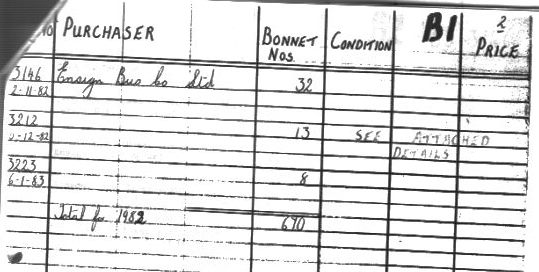 No PURCHASER BONNET NOS. CONDITION B1 2 PRICE
3146 Ensign Bus Co Ltd 32
2-11-82
3212
-12-82 13 SEE ATTACHED
DETAILS
3223
6-1-83 8
Total for 1982 690